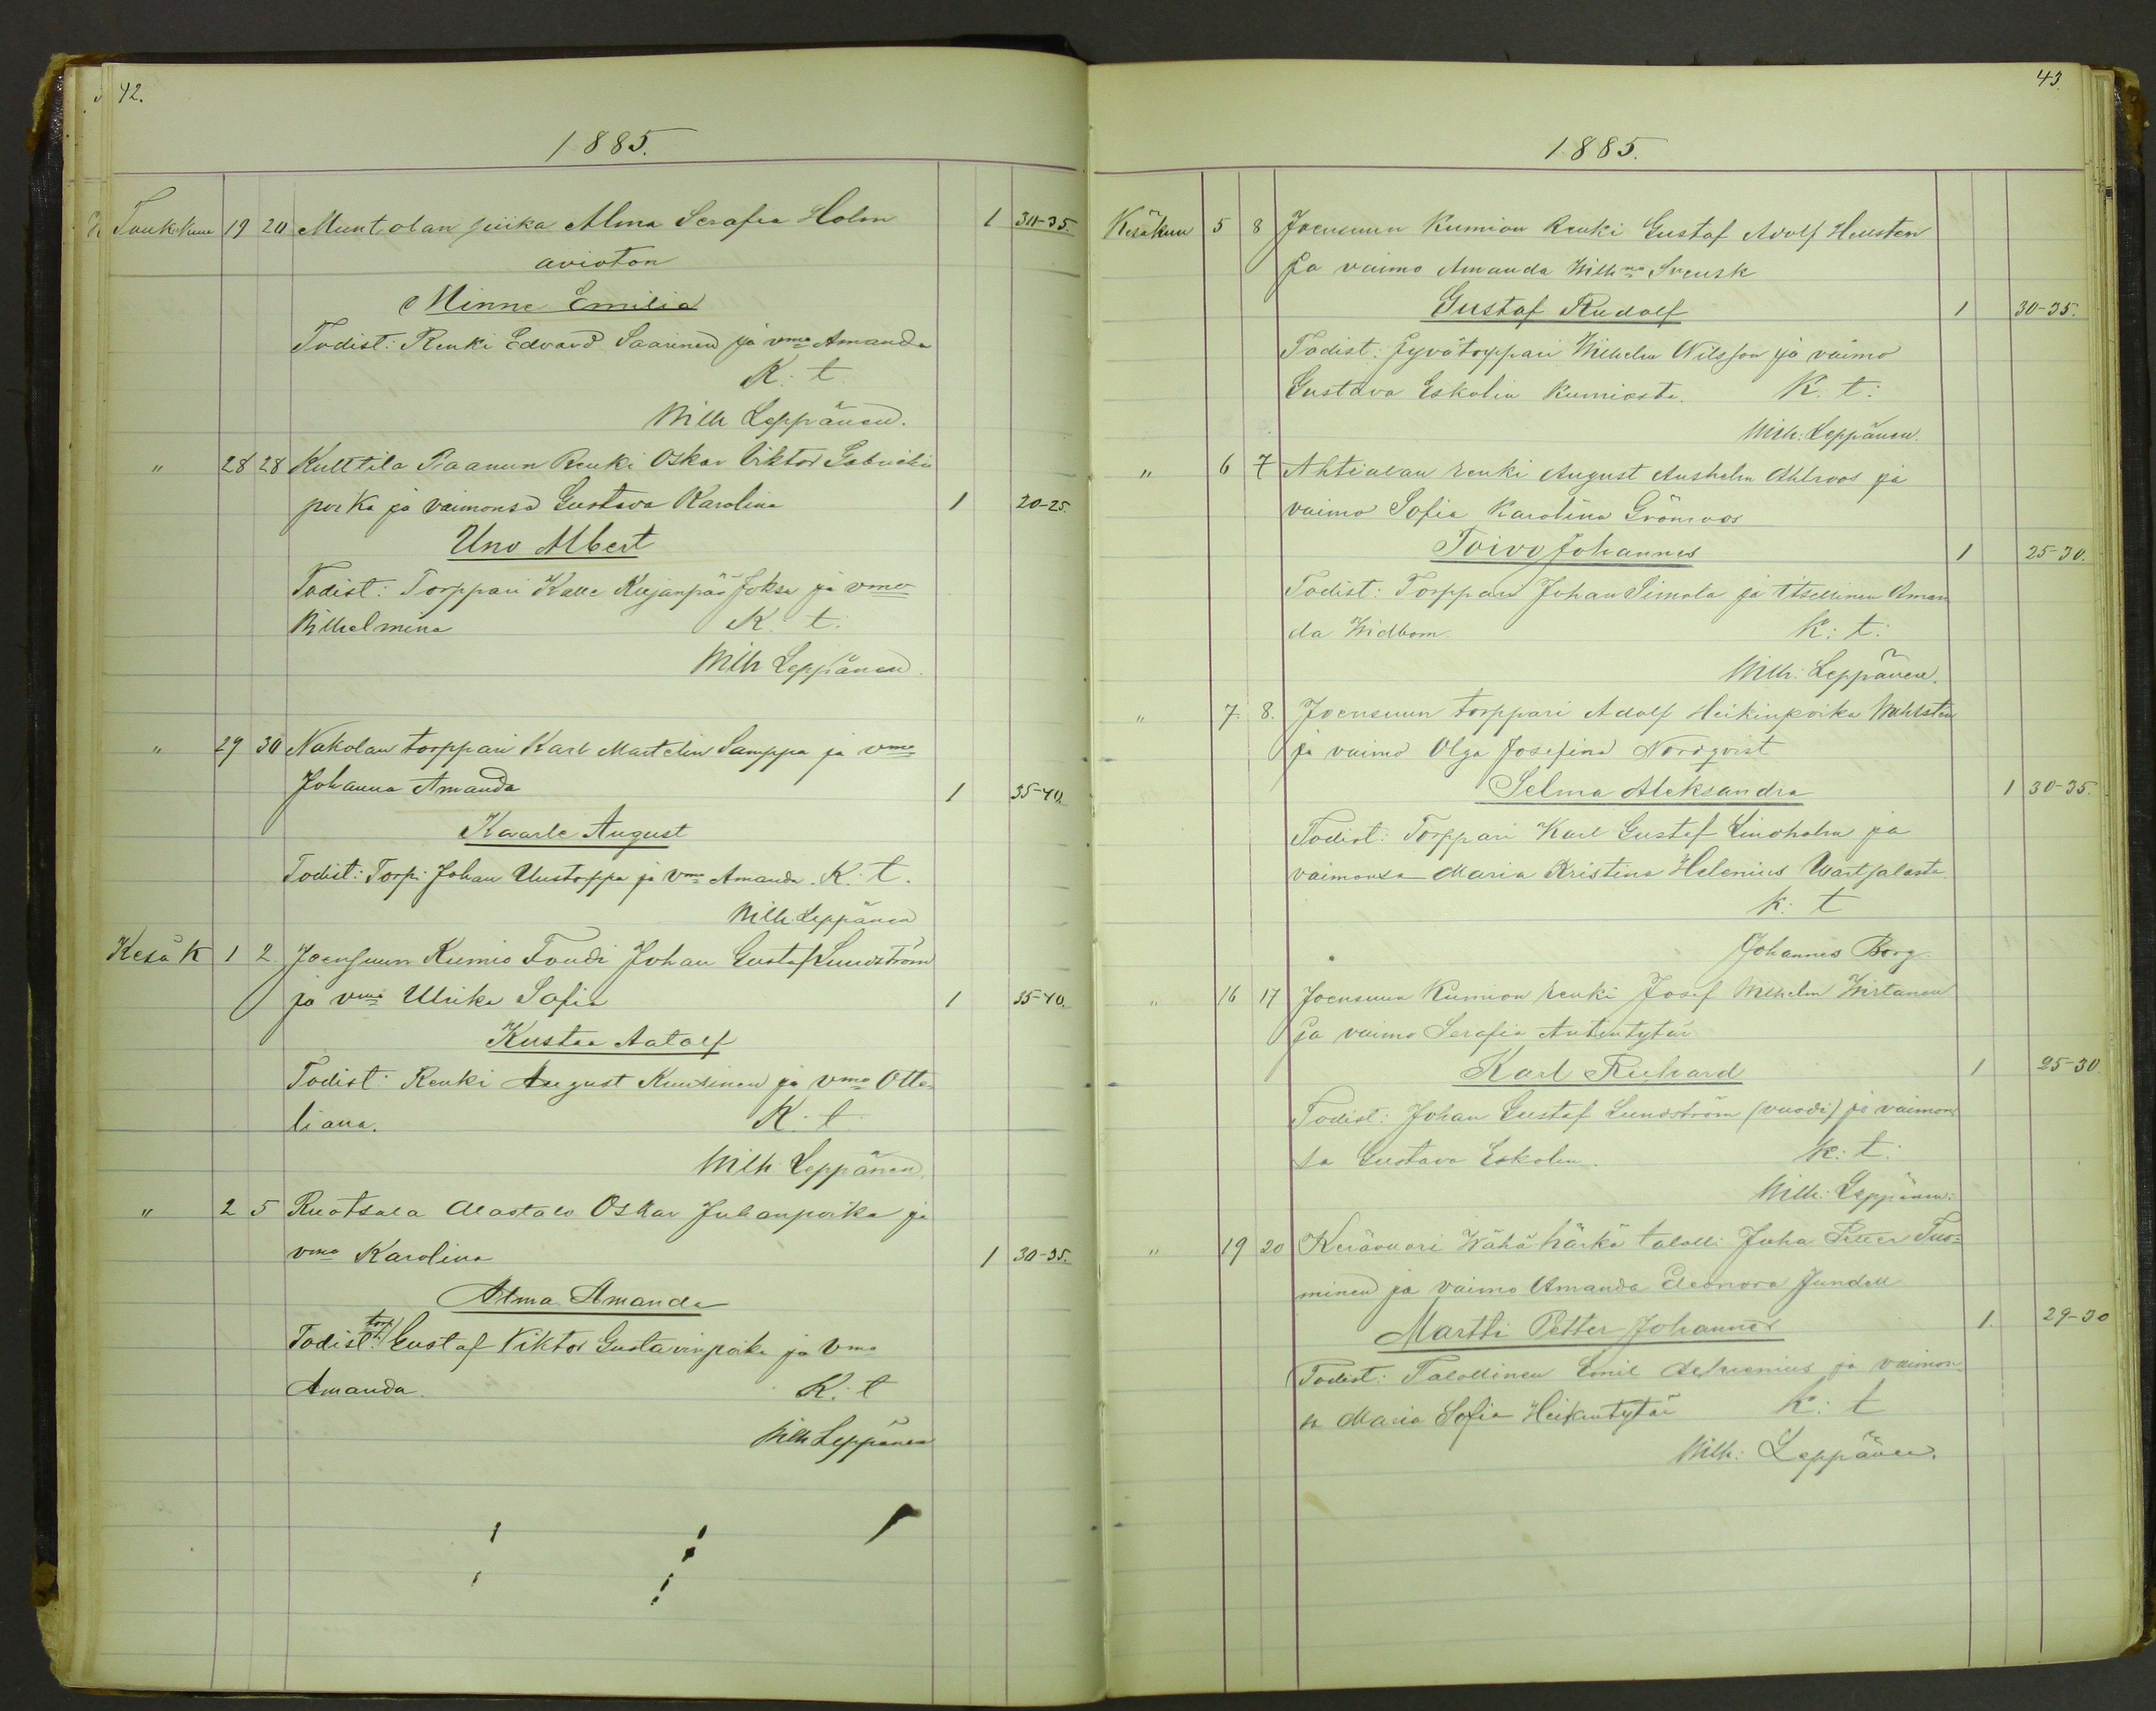 42.
1885.
Toukokuu 19 20 Muntolan piika Alma Serafia Holm 1 30-35.
avioton
Minna Emilia
Todist: Renki Edvard Saarinen ja vmo Amanda
K. t.
Wilh Leppänen.
" 28 28 Kulttila Paanun Renki Oskar Viktor Gabrielin
poika ja vaimonsa Gustava Karolina 1 20-25.
Uno Albert
Todist: Torppari Kalle Kujanpää Joksa ja vmo
Wilhelmina K. t.
Wilh Leppänen.
" 29 30 Nakolan torppari Karl Martelin Samppa ja vmo
Johanna Amanda 1 35-40.
Kaarle August
Todist: Torp: Johan Uustorppa ja vmo Amanda. K. t.
Wilh. Leppänen
Kesäk 1 2 Joensuun Kumio Johan Gustaf Lundström
ja vmo Ulrika Sofia 1 35-40.
Kustaa Aatolf
Todist: Renki August Kuusinen ja vmo Otte-
liana. K. t.
Wilh Leppänen.
" 2 5 Ruotsala Alastalo Oskar Juhanpoika ja
vmo Karolina 1 30-35.
Alma Amanda
Todist: torp: Gustaf Viktor Gustavinpoika ja vmo
Amanda. K. t
Wilh Leppänen
43.
1885.
Kesäkuu 5 8 Joensuun Kumion Renki Gustaf Adolf Hellsten
ja vaimo Amanda Wilhna Svensk
Gustaf Rudolf 1 30-35.
Todist: Jyvätorppari Wilhelm Nilsson ja vaimo
Gustava Eskolin Kumiosta. K. t:
Wilh: Leppänen.
" 6 7 Ahtialan renki August Anshelm Ahlroos ja
vaimo Sofia Karolina Grönroos
Toivo Johannes 1 25-30.
Todist: Torppari Johan Simola ja itsellinen Aman
da Widbom K: t:
Wilh: Leppänen.
" 7. 8. Joensuun torppari Adolf Heikinpoika Wahlsten
ja vaimo Olga Josefina Nordqvist
Selma Aleksandra 1 30-35.
Todist: Torppari Karl Gustaf Lindholm ja
vaimonsa Maria Kristina Helenius Wartsalosta.
K: t
Johannes Borg.
" 16 17 Joensuun Kumion renki Josef Wilhelm Wirtanen
ja vaimo Serafia Antintytär
Karl Richard 1 25-30.
Todist: Johan Gustaf Lundström (vuodi) ja vaimon
sa Gustava Eskolin. K: t:
Wilh: Leppänen:
" 19 20 Kerävuori Wähähärkä talolli Juha Petter Tuo=
minen ja vaimo Amanda Eleonora Jundell
Martti Petter Johannes 1. 29-30
Todist: Talollinen Emil ja vaimon
sa Maria Sofia Heikintytär K: t
Wilh: Leppänen.